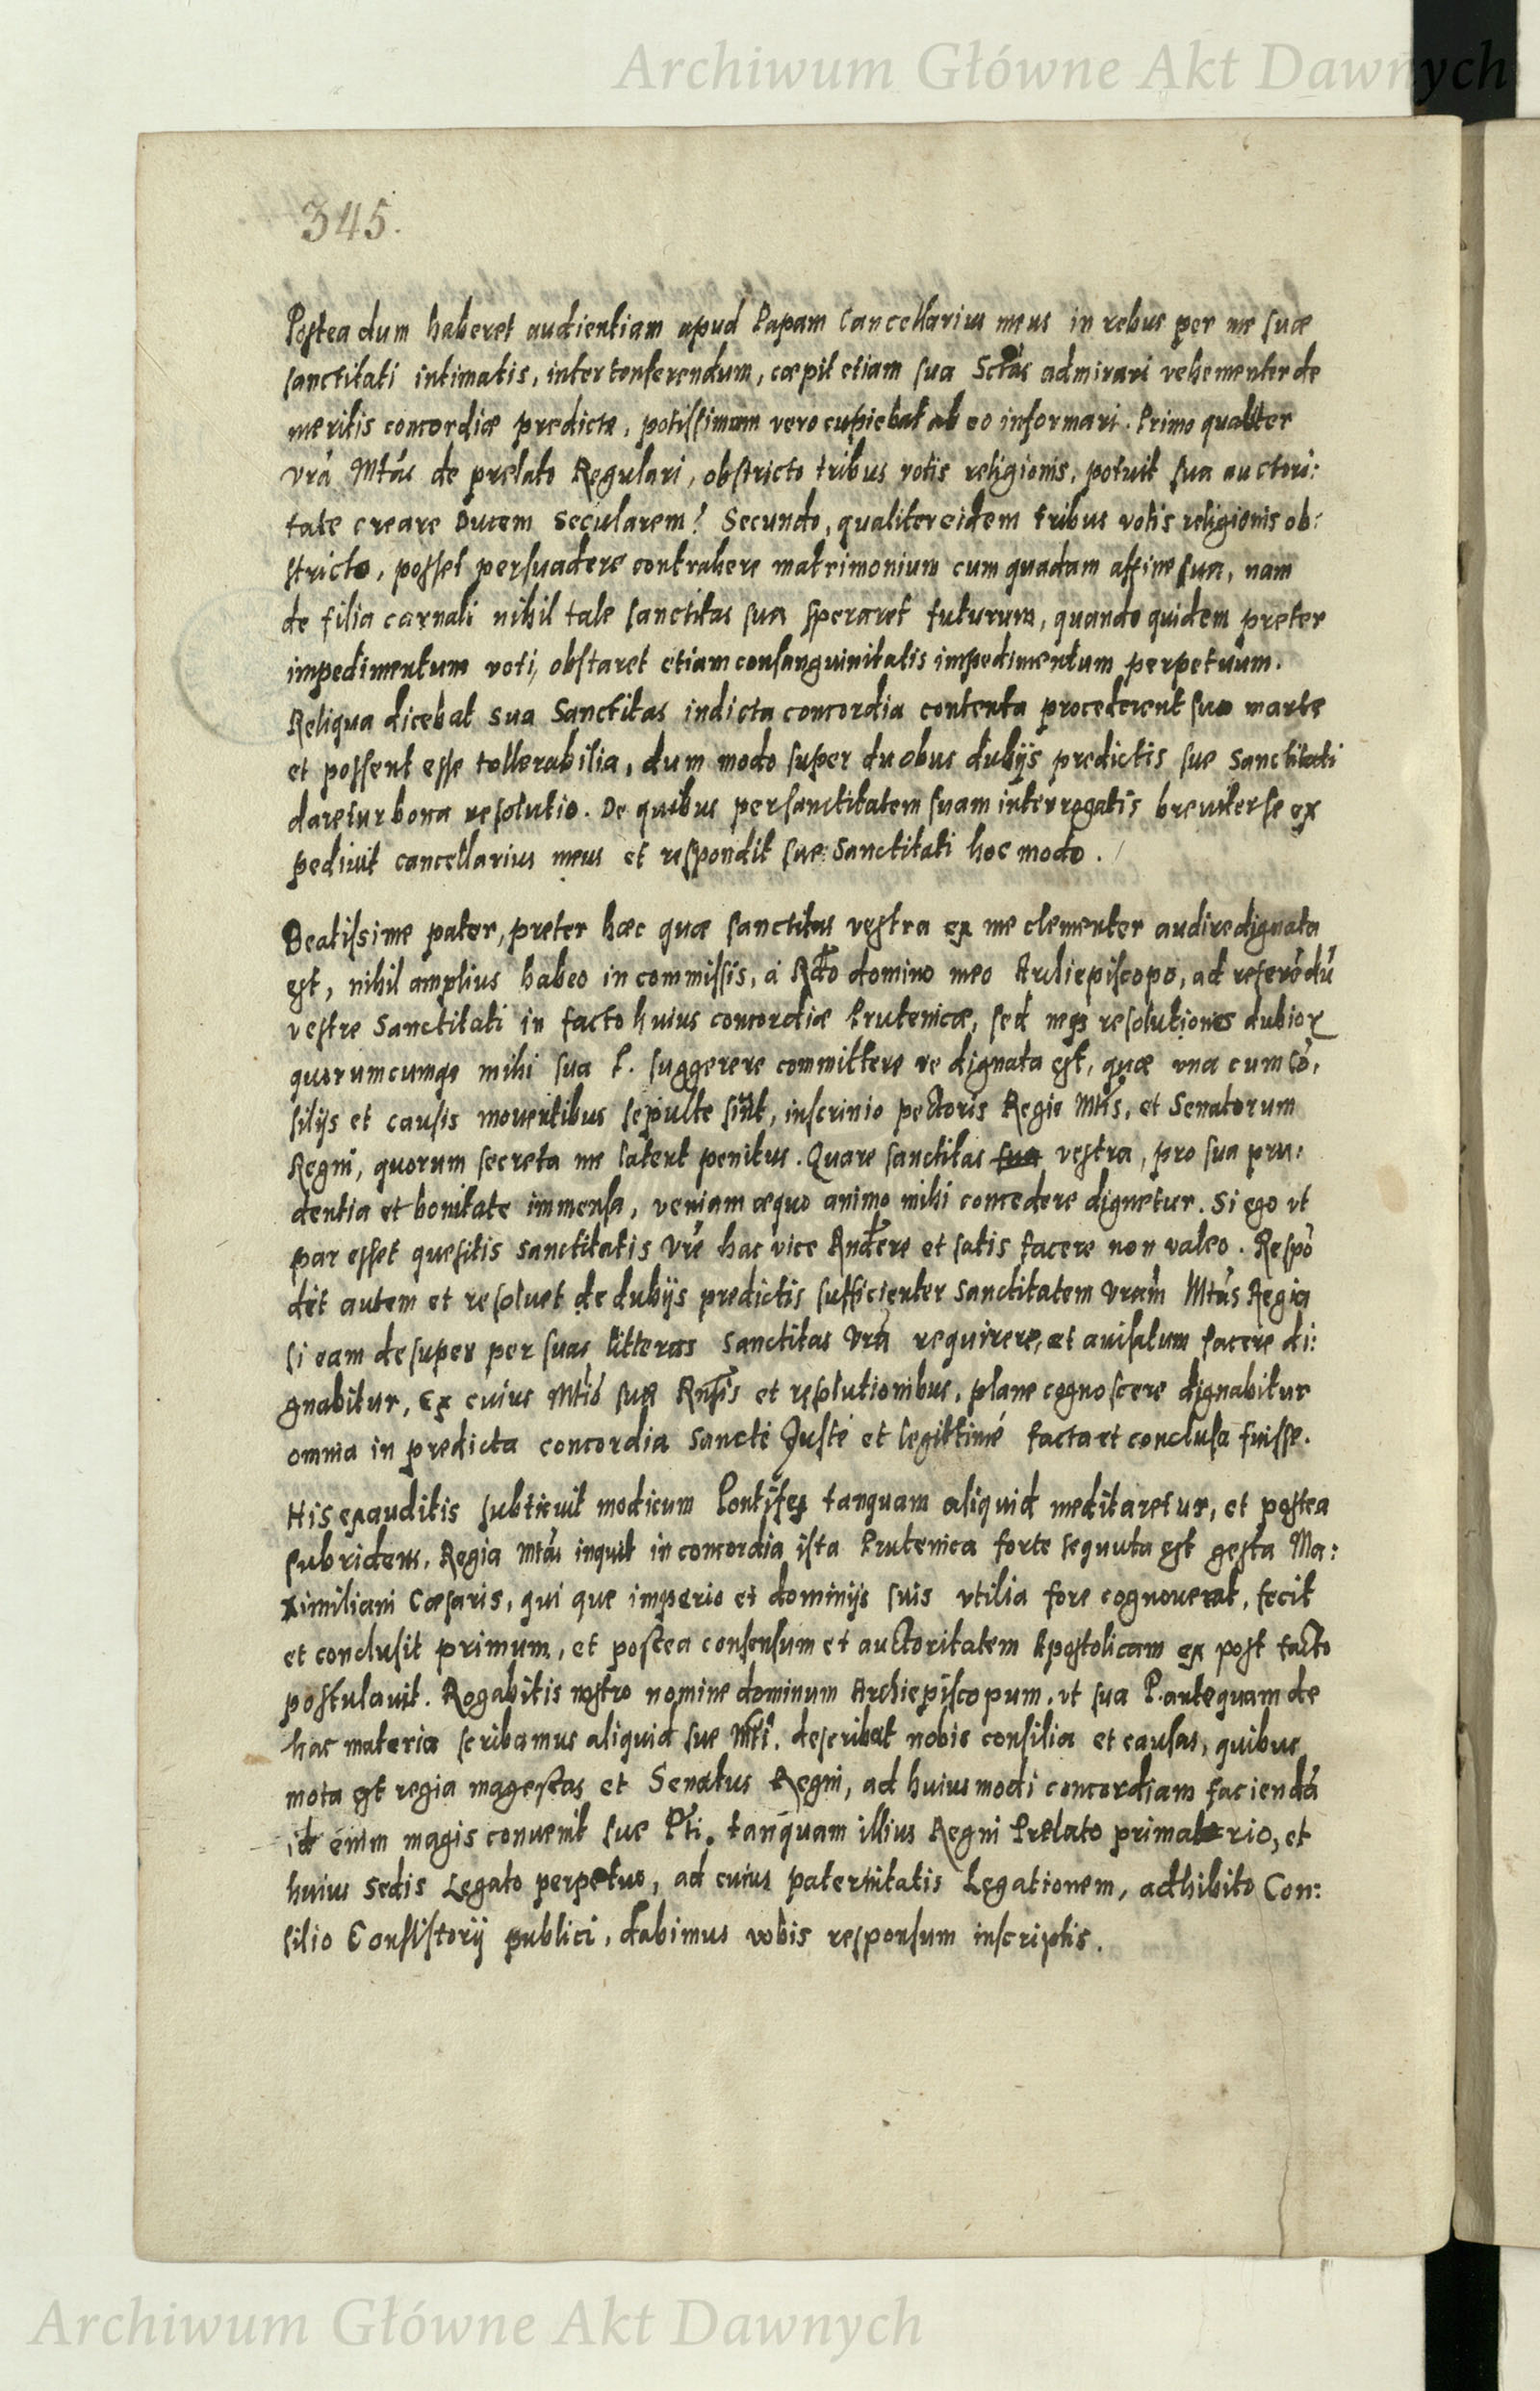 Archiwum Główne Akt Dawnych
345.
Postea dum haberet audientiam apud Papam Cancellarius meus in rebus per me suæ
sanctitati intimatis, inter conferendum, cæpit etiam sua Sctás admirari vehementer de
meritis concordiæ predictæ, potissimum vero cupiebat ab eo informari. Primo qualiter
vrá Mtás de prelato Regulari, obstricto tribus votis religionis, potuit sua auctori:
tate creare Ducem Secularem? Secundo, qualiter eidem tribus votis religionis ob:
stricto, posset persuadere contrahere matrimonium cum quadam affine sua, nam
de filia carnali nihil tale sanctitas sua speraret futurum, quando quidem preter
impedimentum voti, obstaret etiam consanguinitatis impedimentum perpetuum.
Reliqua dicebat sua Sanctitas in dicta concordia contenta procederent suo marte
et possent esse tollerabilia, dum modo super duobus dubijs predictis sue Sanctitati
daretur bona resolutio. De quibus per sanctitatem suam interrogatis breviter se ex
pedivit cancellarius meus et respondit sue Sanctitati hoc modo.
Beatissime pater, preter hæc quæ sanctitas vestra ex me clementer audire dignata
est, nihil amplius habeo in commissis, á Rdo domino meo Archiepiscopo, ad referẽdũ
vestre Sanctitati in facto huius concordiæ Prutenicæ, sed neqз resolutiones dubioꝝ
quorumcumqз mihi sua P. suggerere committere ve dignata est, quæ vna cum cõ:
silijs et causis moventibus sepulte sint, in scrinio pectoris Regie Mtis, et Senatorum
Regni, quorum secreta me latent penitus. Quare sanctitas sua vestra, pro sua pru:
dentia et bonitate immensa, veniam æquo animo mihi concedere dignetur. Si ego vt
par esset quesitis sanctitatis vrẽ hac vice Rndere et satis facere non valeo. Respõ
det autem et resoluet de dubijs predictis sufficienter Sanctitatem vram Mtás Regia
si eam desuper per suas litteras Sanctitas vrá requirere, et avisatum facere di:
gnabitur, Ex cuius Mtis suæ Rnsis et resolutionibus, plane cognoscere dignabitur
omnia in predicta concordia Sancté Justé et legittimé facta et conclusa fuisse.
His exauditis subticuit modicum Pontifex tanquam aliquid meditaretur, et postea
subridens. Regia Mtás inquit in concordia ista Prutenica forte sequuta est gesta Ma:
ximiliani Cæsaris, qui que imperio et dominijs suis vtilia fore cognouerat, fecit
et conclusit primum, et postea consensum et auctoritatem Apostolicam ex post facto
postulauit. Rogabitis nostro nomine dominum Archiepiscopum, vt sua P. antequam de
hac materia scribamus aliquid sue Mti. describat nobis consilia et causas, quibus
mota est regia magestas et Senatus Regni, ad huiusmodi concordiam faciendã
id enim magis convenit sue Pti. tanquam illius Regni Prelato primaterio, et
huius Sedis Legato perpetuo, ad cuius paternitatis Legationem, adhibito Con:
silio Consistorij publici, dabimus vobis responsum in scriptis.
Archiwum Główne Akt Dawnych